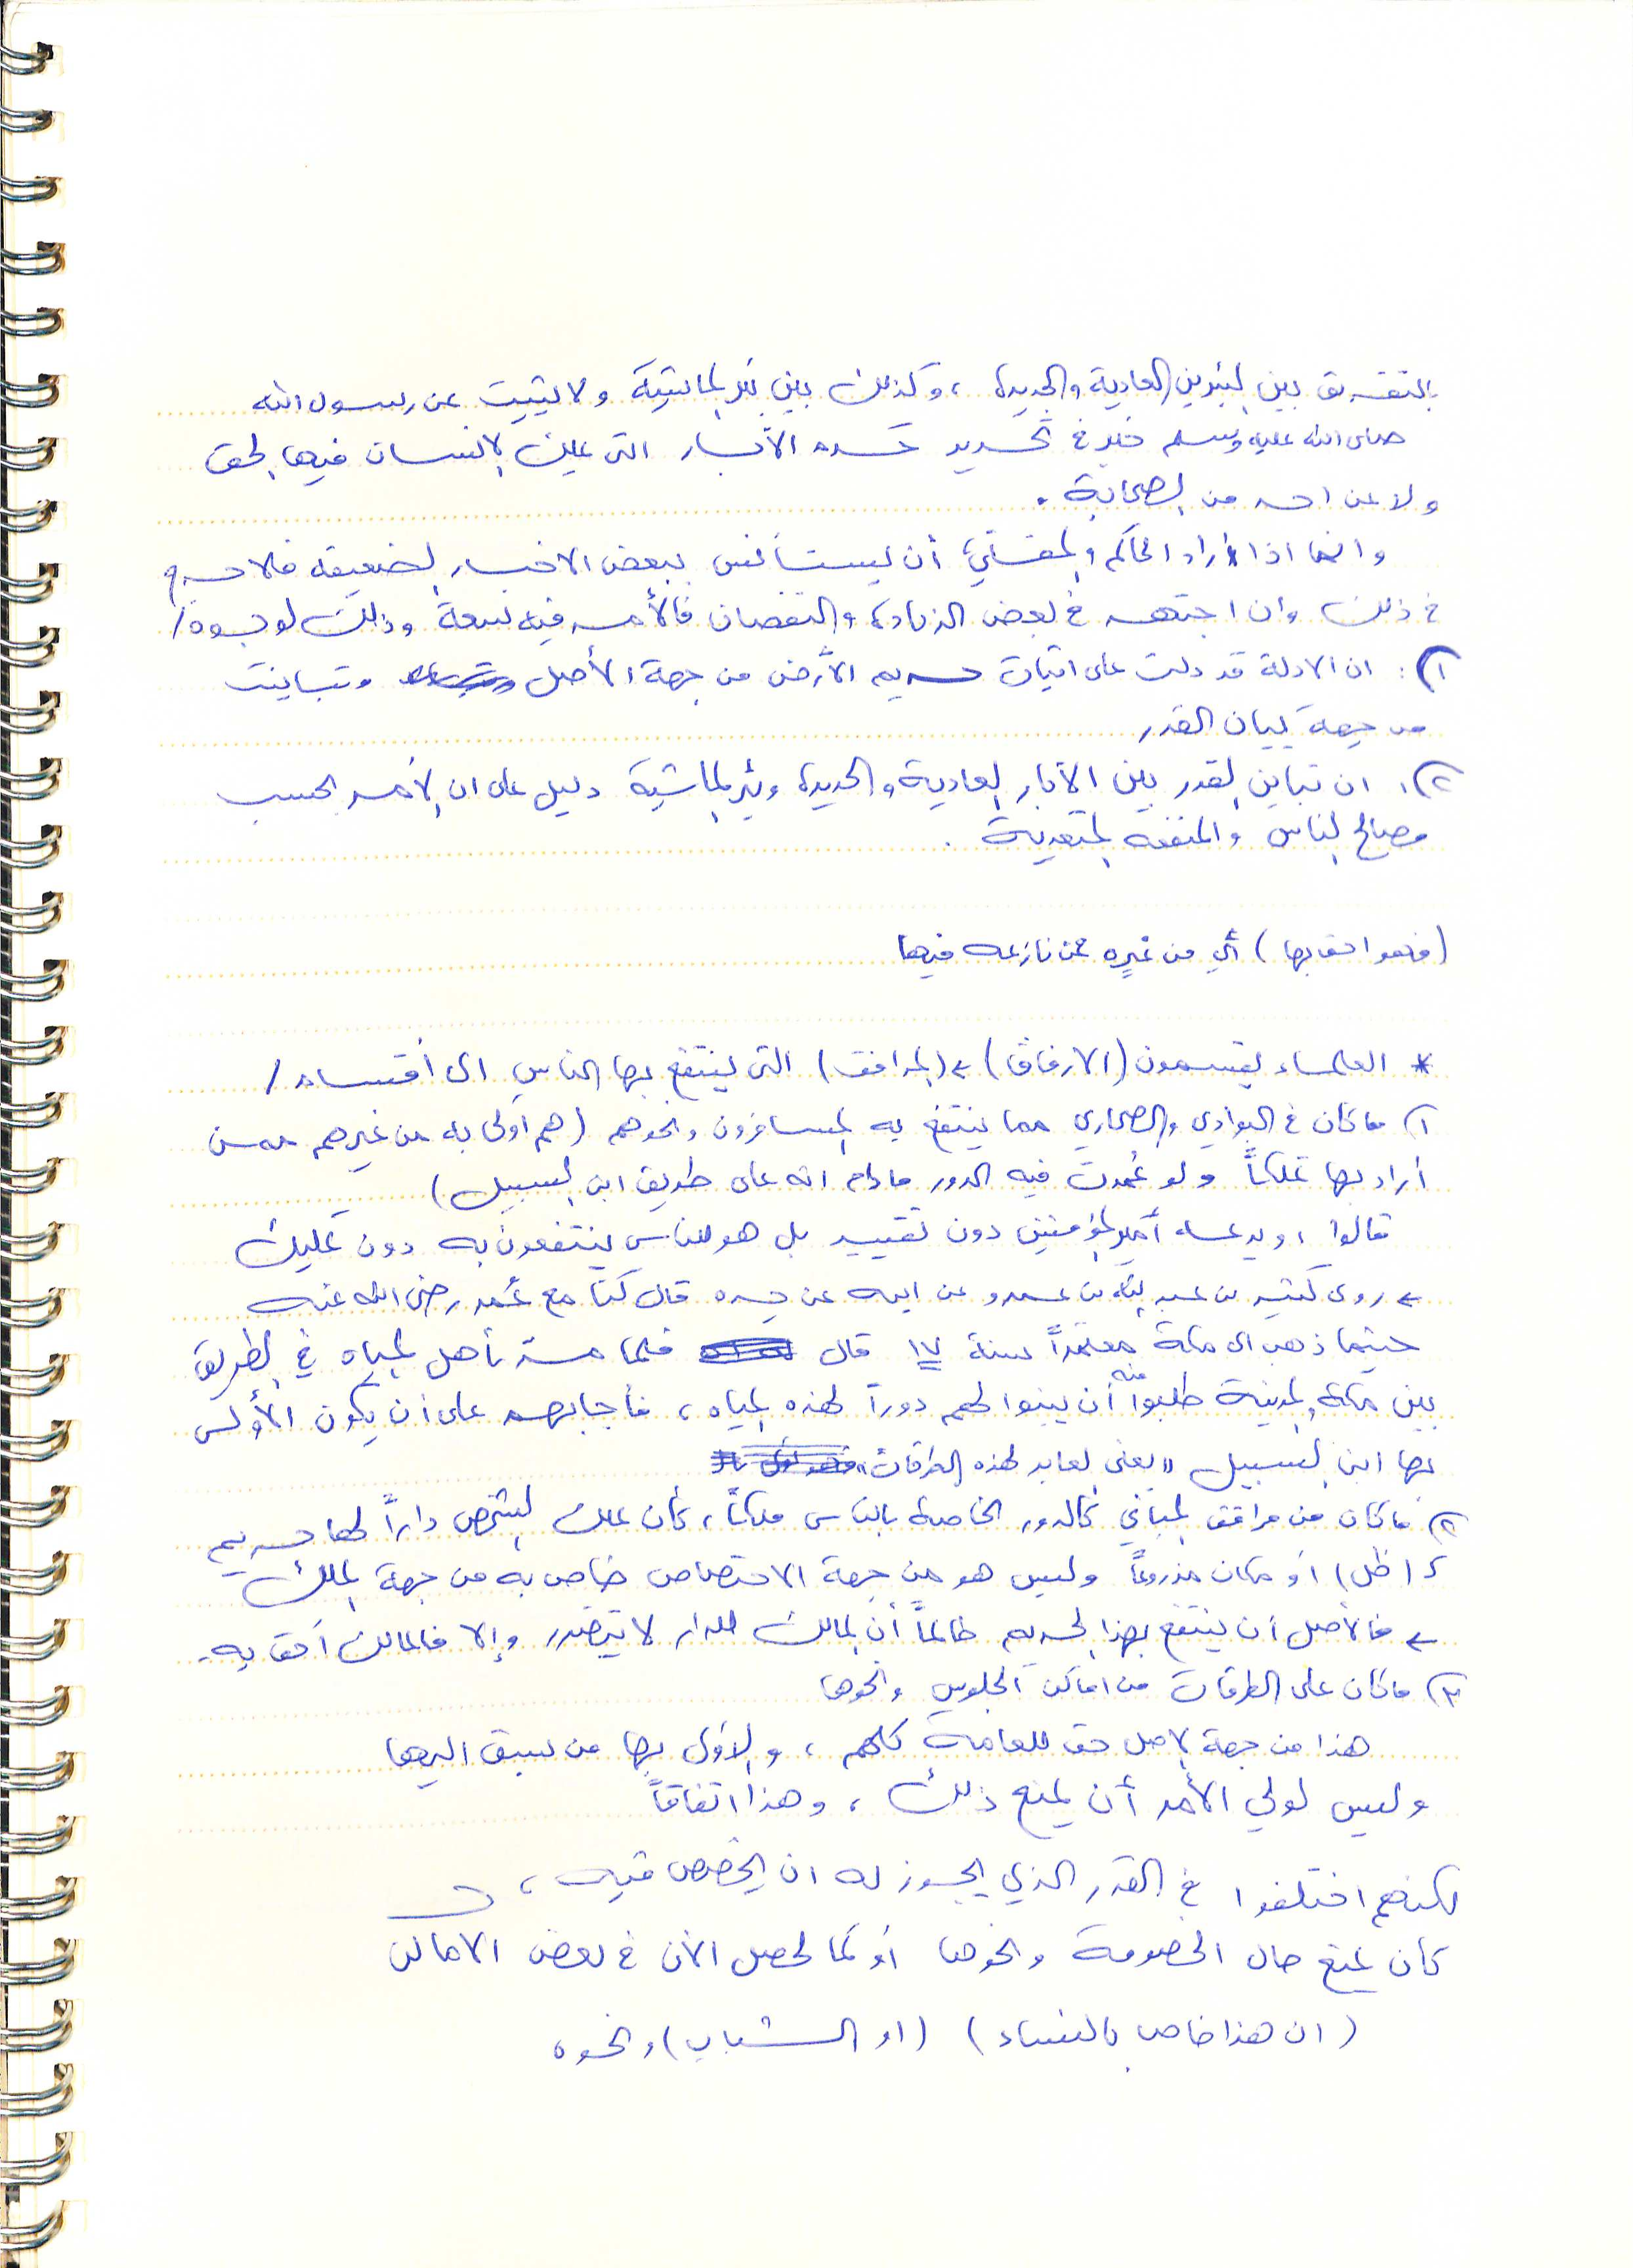 بالتفريق بين البئرين العادية والجديدة، وكذلك بين بئر الماشية ولا يثبت عن رسول الله
صلى الله عليه وسلم خبر في تحديد هذه الآبار التي يملك الإنسان فيها الحق
ولا عن احد من الصحابة.
وانما اذا أراد الحاكم والمفتي أن يستأنس ببعض الاخبار الضعيفة فلا حرج
في ذلك وان اجتهد في بعض الزيادة والنقصان فالأمر فيه سعة وذلك لوجوه/
١): ان الادلة قد دلت على اثبات حريم الأرض من جهة الأصل وتباينت
من جهة بيان القدر
٢): ان تباين القدر بين الآبار العادية والجديدة وبئر الماشية دليل على ان الأمر بحسب
مصالح الناس والمنفعة المتعدية.
(فهو احق بها) أي من غيره ممن نازعه فيها
* العلماء يقسمون (الارفاق) > (المرافق) التي ينتفع بها الناس الى أقسام/
١) ما كان في البوادي والصحاري مما ينتفع به المسافرون ونحوهم (هم أولى به من غيرهم ممن
أراد بها تملكاً ولو عُمرت فيه الدور مادام انه على طريق ابن السبيل)
قالوا: ويدعه أمير المؤمنين دون تقييد بل هو للناس ينتفعون به دون تمليك
> روى كثير بن عبد الله بن عمرو عن ابيه عن جده قال كنا مع عُمر رضي الله عنه
حينما ذهب الى مكة معتمراً سنة ١٧ قال فلما مر بأهل المياه في الطريق
بين مكة والمدينة طلبوا منه أن يبنوا لهم دوراً لهذه المياه، فأجابهم على أن يكون الأولى
بها ابن السبيل "يعني لعابر لهذه الطرقات"
٢) ما كان من مرافق المباني كالدور الخاصة بالناس ملكاً، كأن يملك الشخص داراً لها حريم
كـ(ظل) أو مكان مزروعاً وليس هو من جهة الاختصاص خاص به من جهة الملك
> فالأصل أن ينتفع بهذا الحريم طالماً أن المالك للدار لا يتضرر وإلا فالمالك أحق به.
٣) ما كان على الطرقات من اماكن الجلوس ونحوها
هذا من جهة الاصل حق للعامة كلهم، والأولى بها من سبق اليها
وليس لولي الأمر أن يمنع ذلك، وهذا اتفاقاً
لكنهم اختلفوا في القدر الذي يجوز له ان يخصص فيه،
كأن يمنع حال الخصومة ونحوها أو كما يحصل الآن في بعض الاماكن
(ان هذا خاص بالنساء) (او الشباب) ونحوه